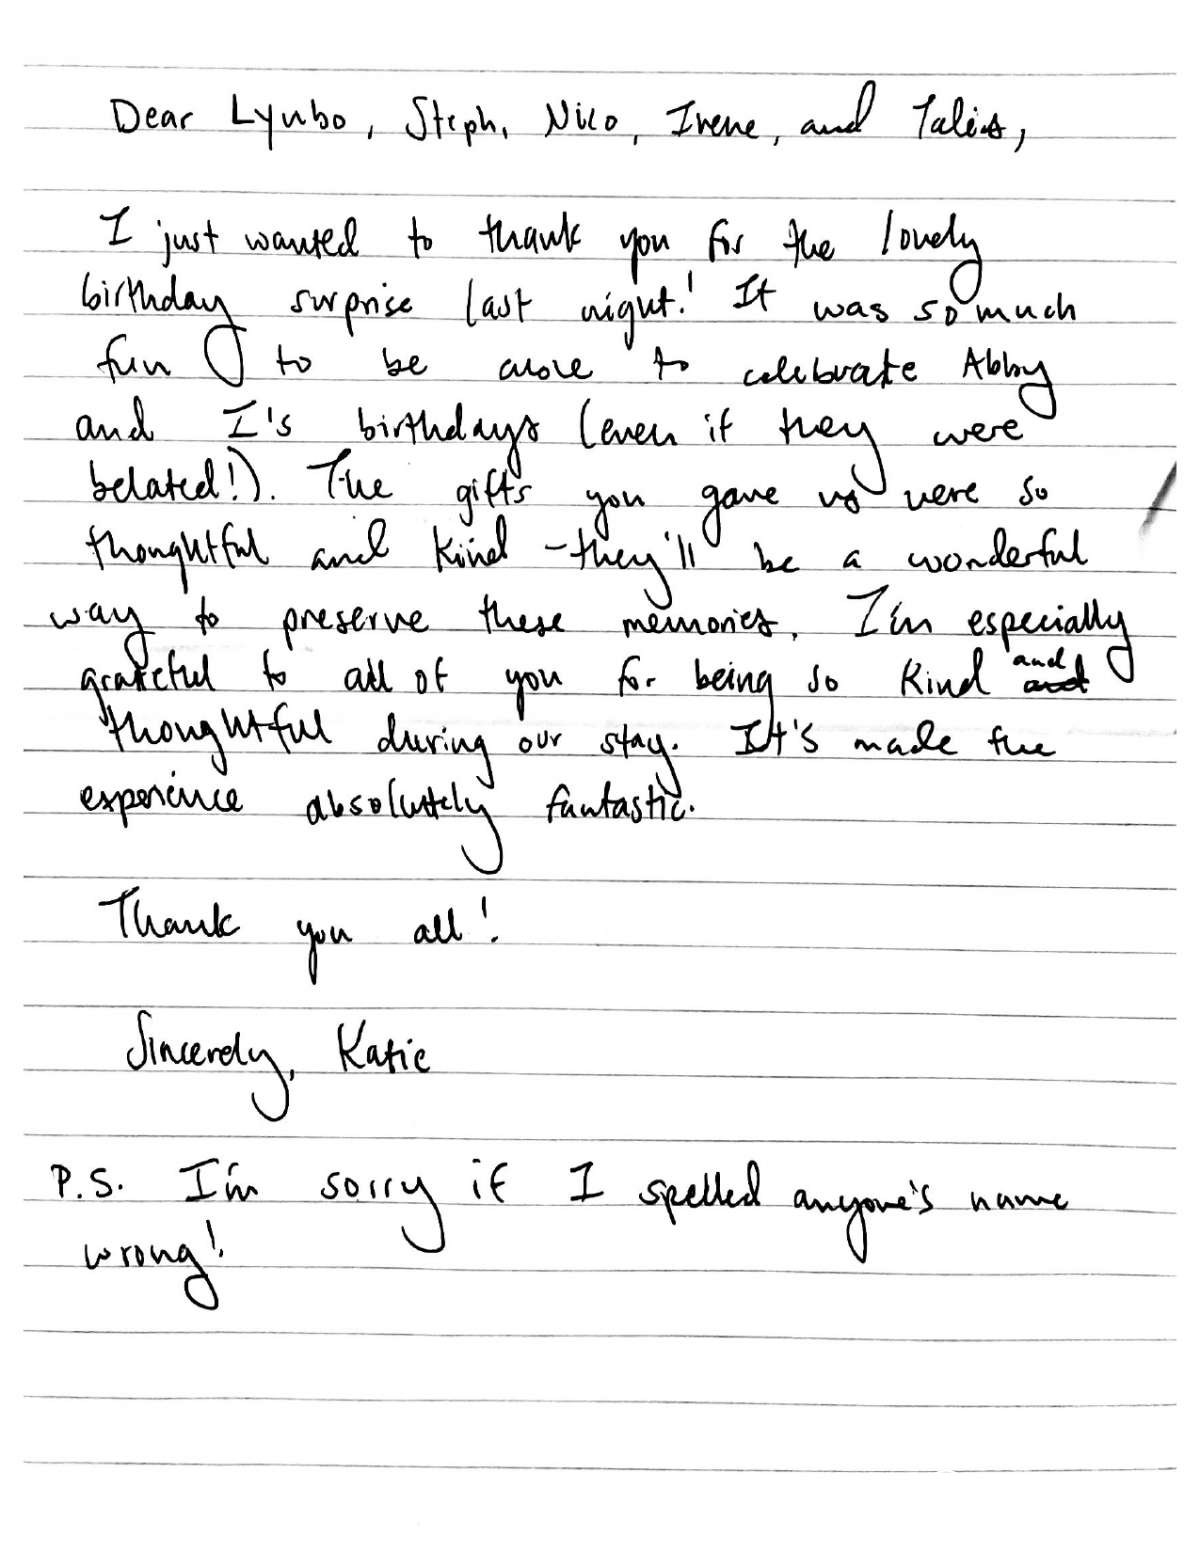 Dear Lyubo, Steph, Nico, Irene, and
I just wanted to thank you for the lovely
birthday surprise last night! It was so much
fun to be able to celebrate Abby
and I's birthdays (even if they were
belated!). The gifts you gave us were so
thoughtful and kind - they'll be a wonderful
way to preserve these memories. I'm especially
grateful to all of you for being so kind and
thoughtful during our stay. It's made the
experience absolutely fantastic.
Thank you all!
Sincerely, Katie
P.S. I'm sorry if I spelled anyone's name
wrong!